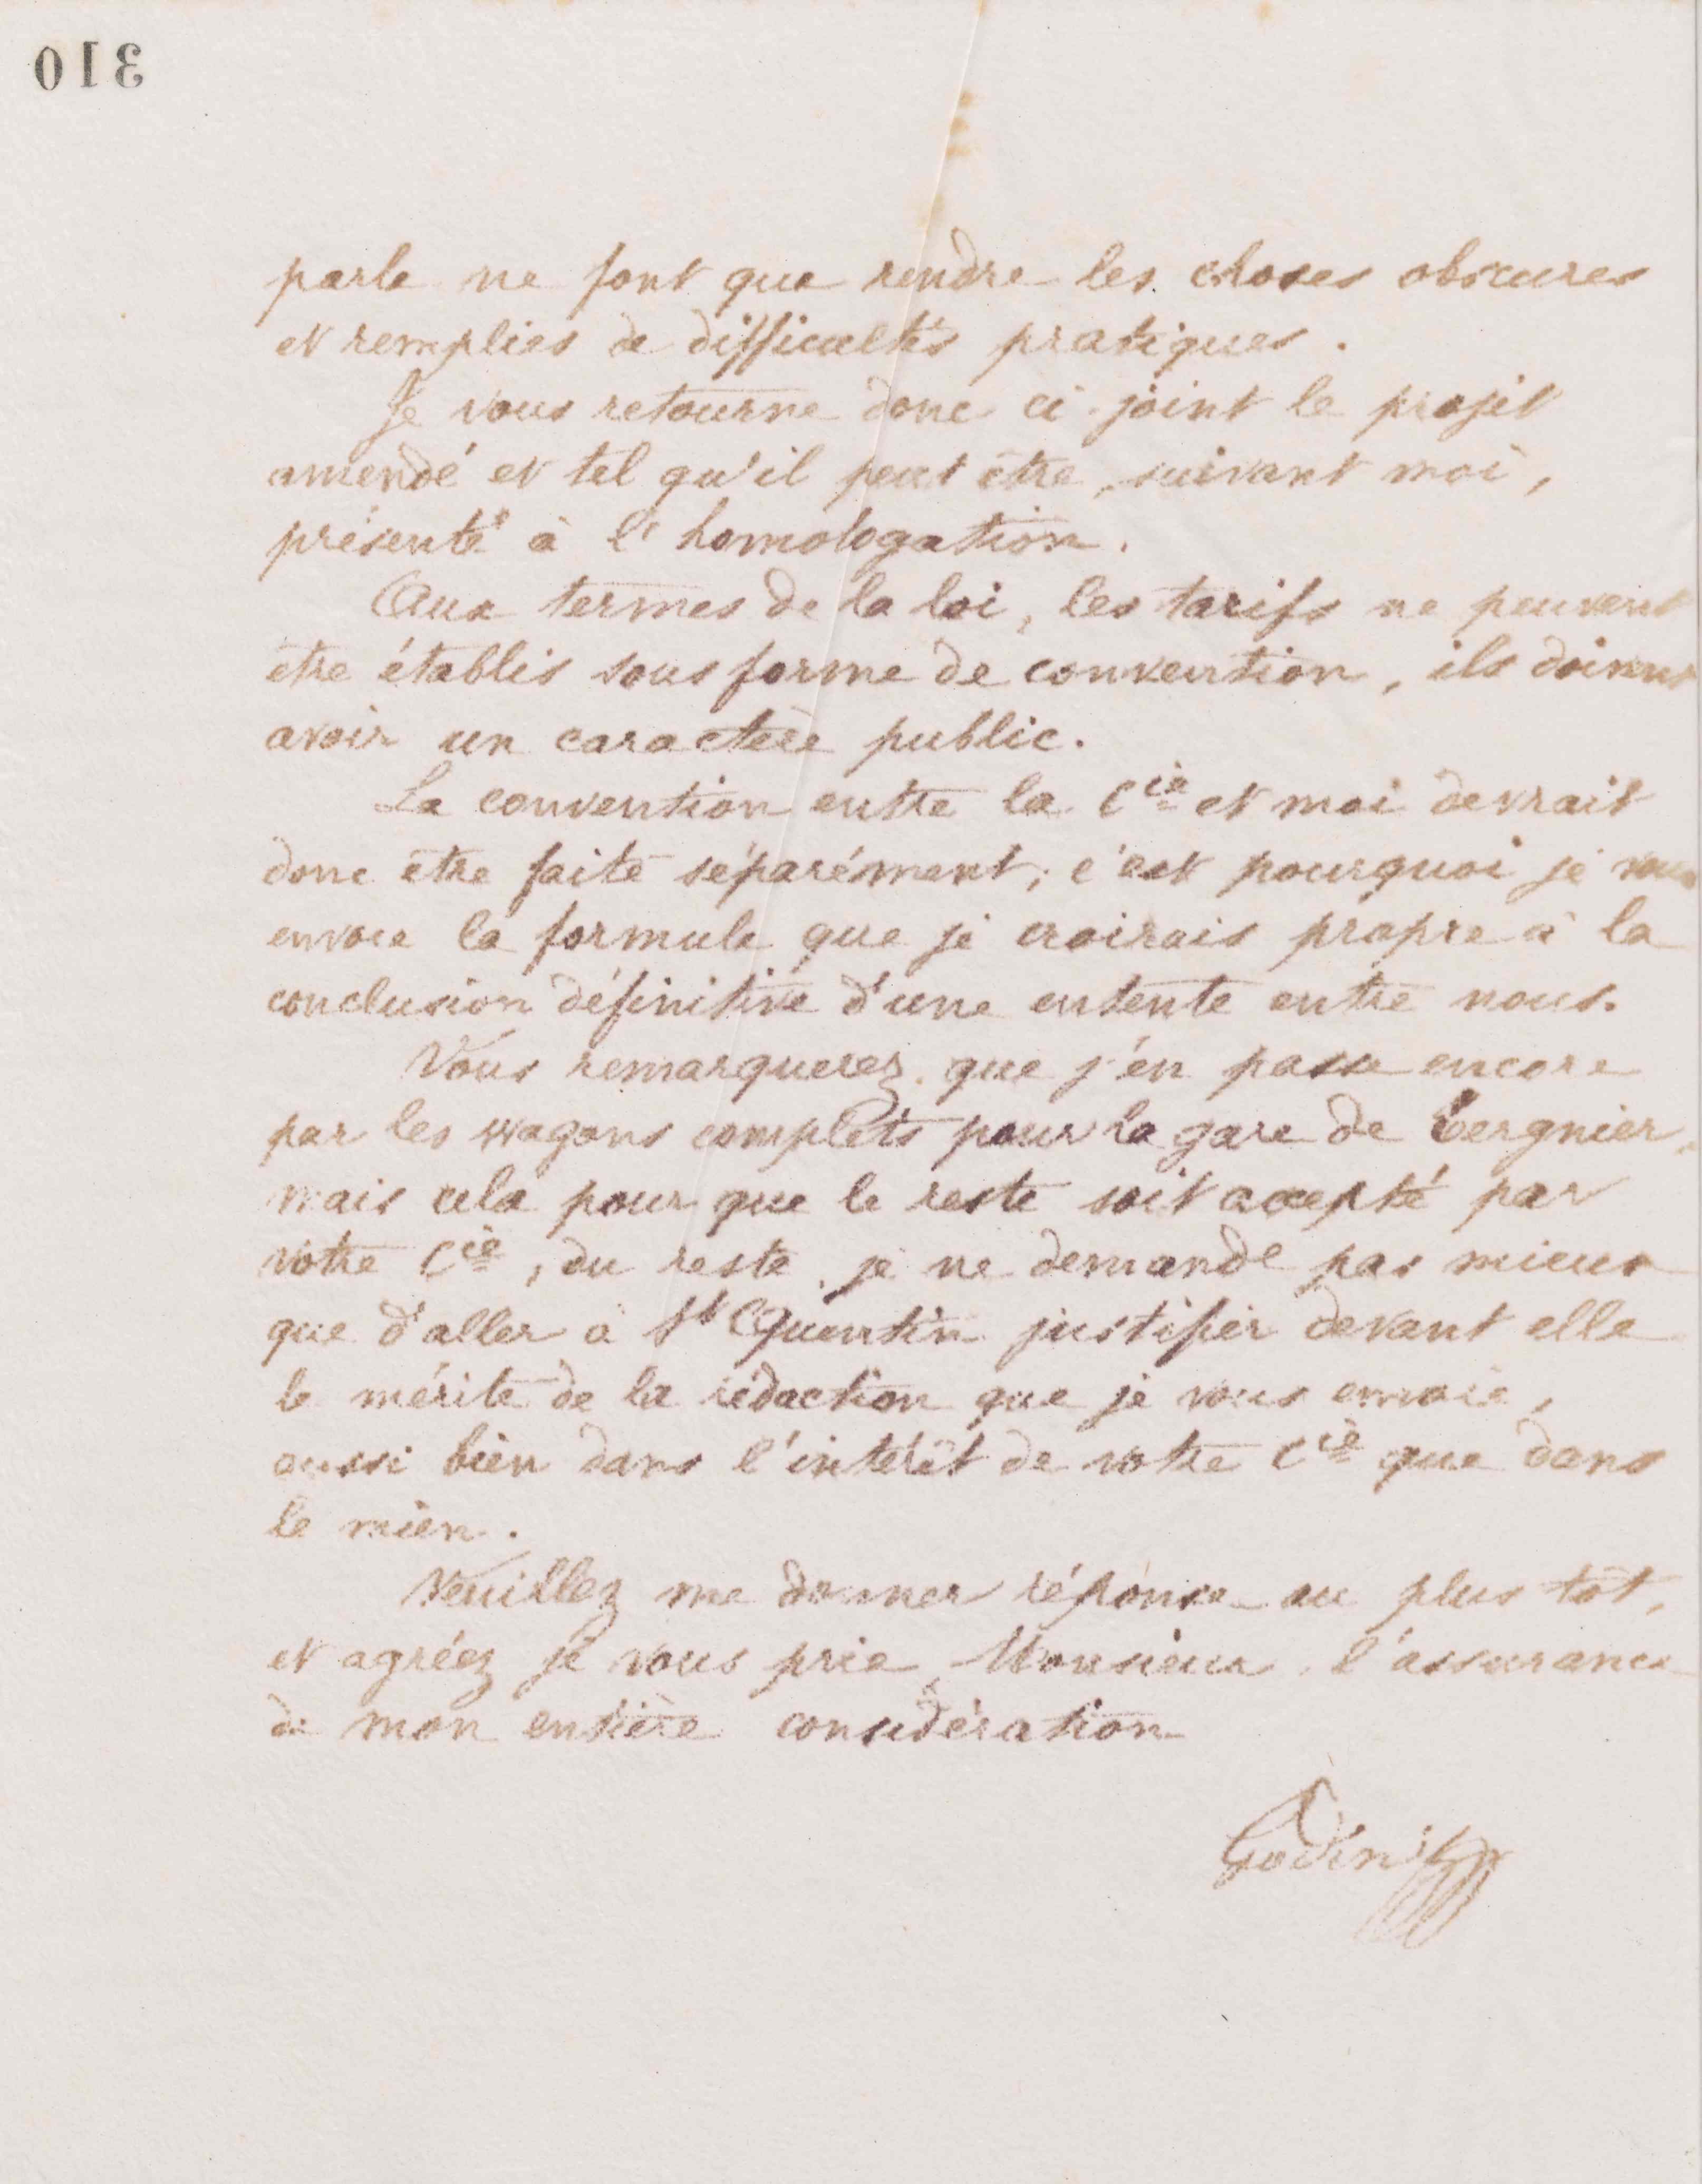 310
parle ne font que rendre les choses obscures
et remplies de difficultés pratiques.
Je vous retourne donc ci-joint le projet
amendé et tel qu'il peut être, suivant moi,
présenté à l'homologation.
Aux termes de la loi, les tarifs ne peuvent
être établis sous forme de convention, ils doivent
avoir un caractère public.
La convention entre la Cie et moi devrait
donc être faite séparément; c'est pourquoi je vous
envoie la formule que je croirais propre à la
conclusion définitive d'une entente entre nous.
Vous remarquerez que j'en passe encore
par les wagons complets pour la gare de Tergnier
mais cela pour que le reste soit accepté par
votre Cie, du reste je ne demande pas mieux
que d'aller à St Quentin justifier devant elle
le mérite de la rédaction que je vous envoie,
aussi bien dans l'intérêt de votre Cie que dans
le mien.
Veuillez me donner réponse au plus tôt,
et agréez je vous prie, Monsieur, l'assurance
de mon entière considération
Godin